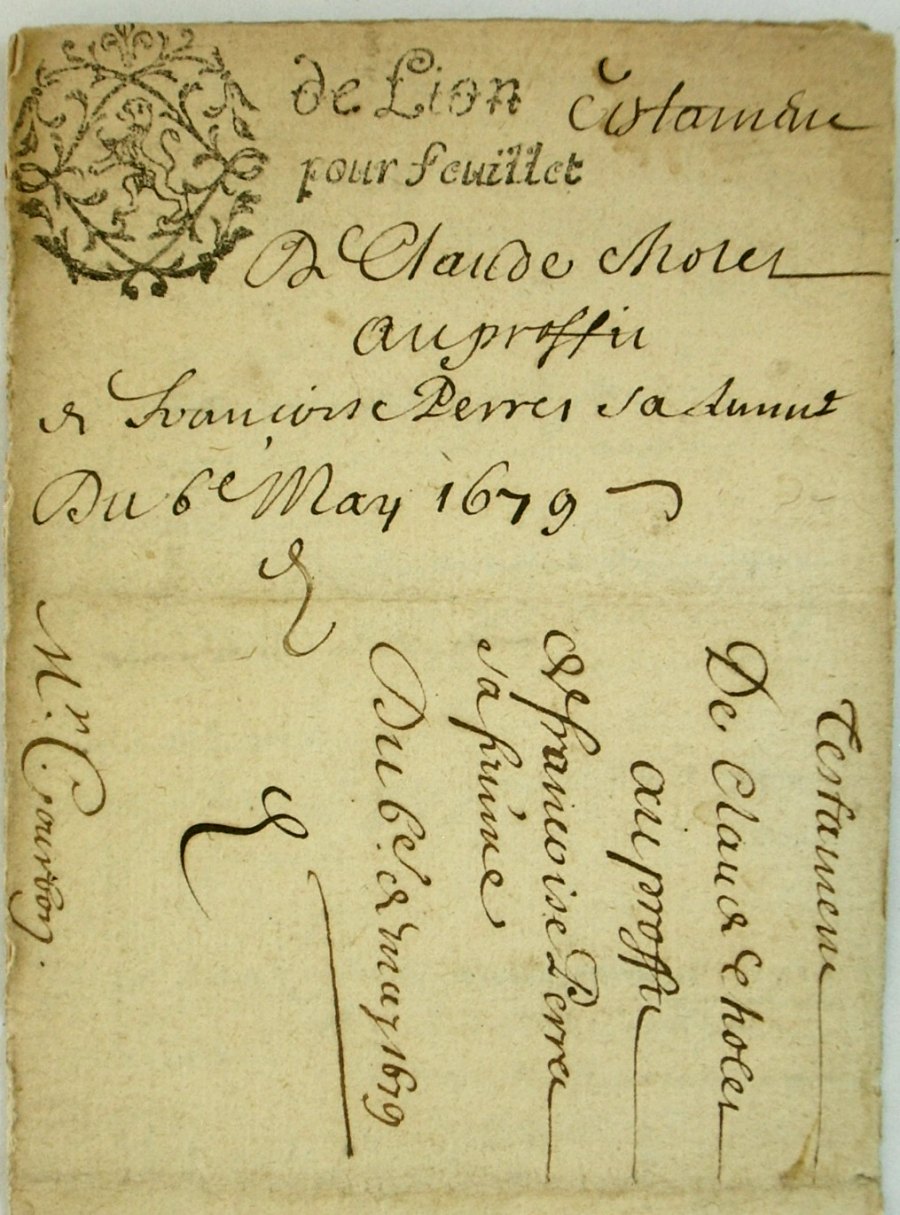 de Lion
pour feuillet
Testament
De Claude Choles
au proffit
de Francoise Perres sa femme
Du 6e May 1679
Testament
De Claude Choles
au proffit
de francoise Perret
sa femme
Du 6e de may 1679
Mr. Courbon.